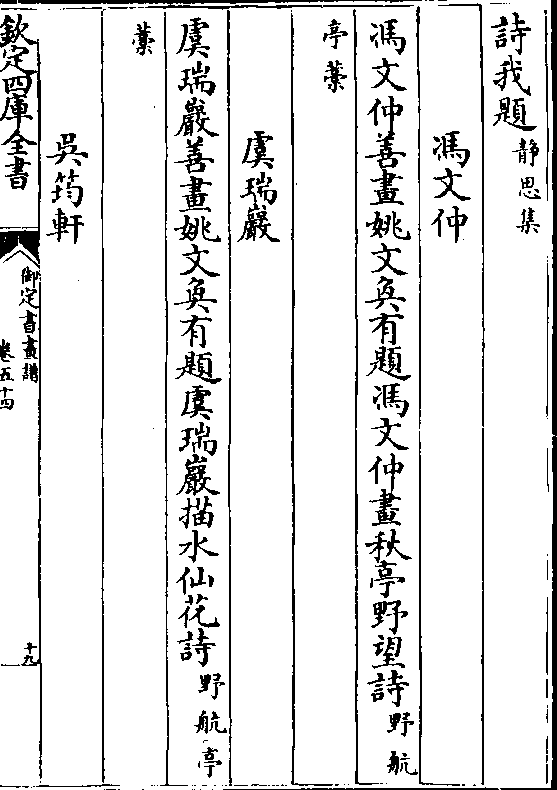 詩我題靜思集
馮文仲
馮文仲善畫姚文奐有題馮文仲畫秋亭野望詩野航
亭藁
虞瑞巖
虞瑞巖善畫姚文奐有題虞瑞巖描水仙花詩野航亭
藁
吳筠軒
欽定四庫全書
御定書畫譜
卷五十四
十九